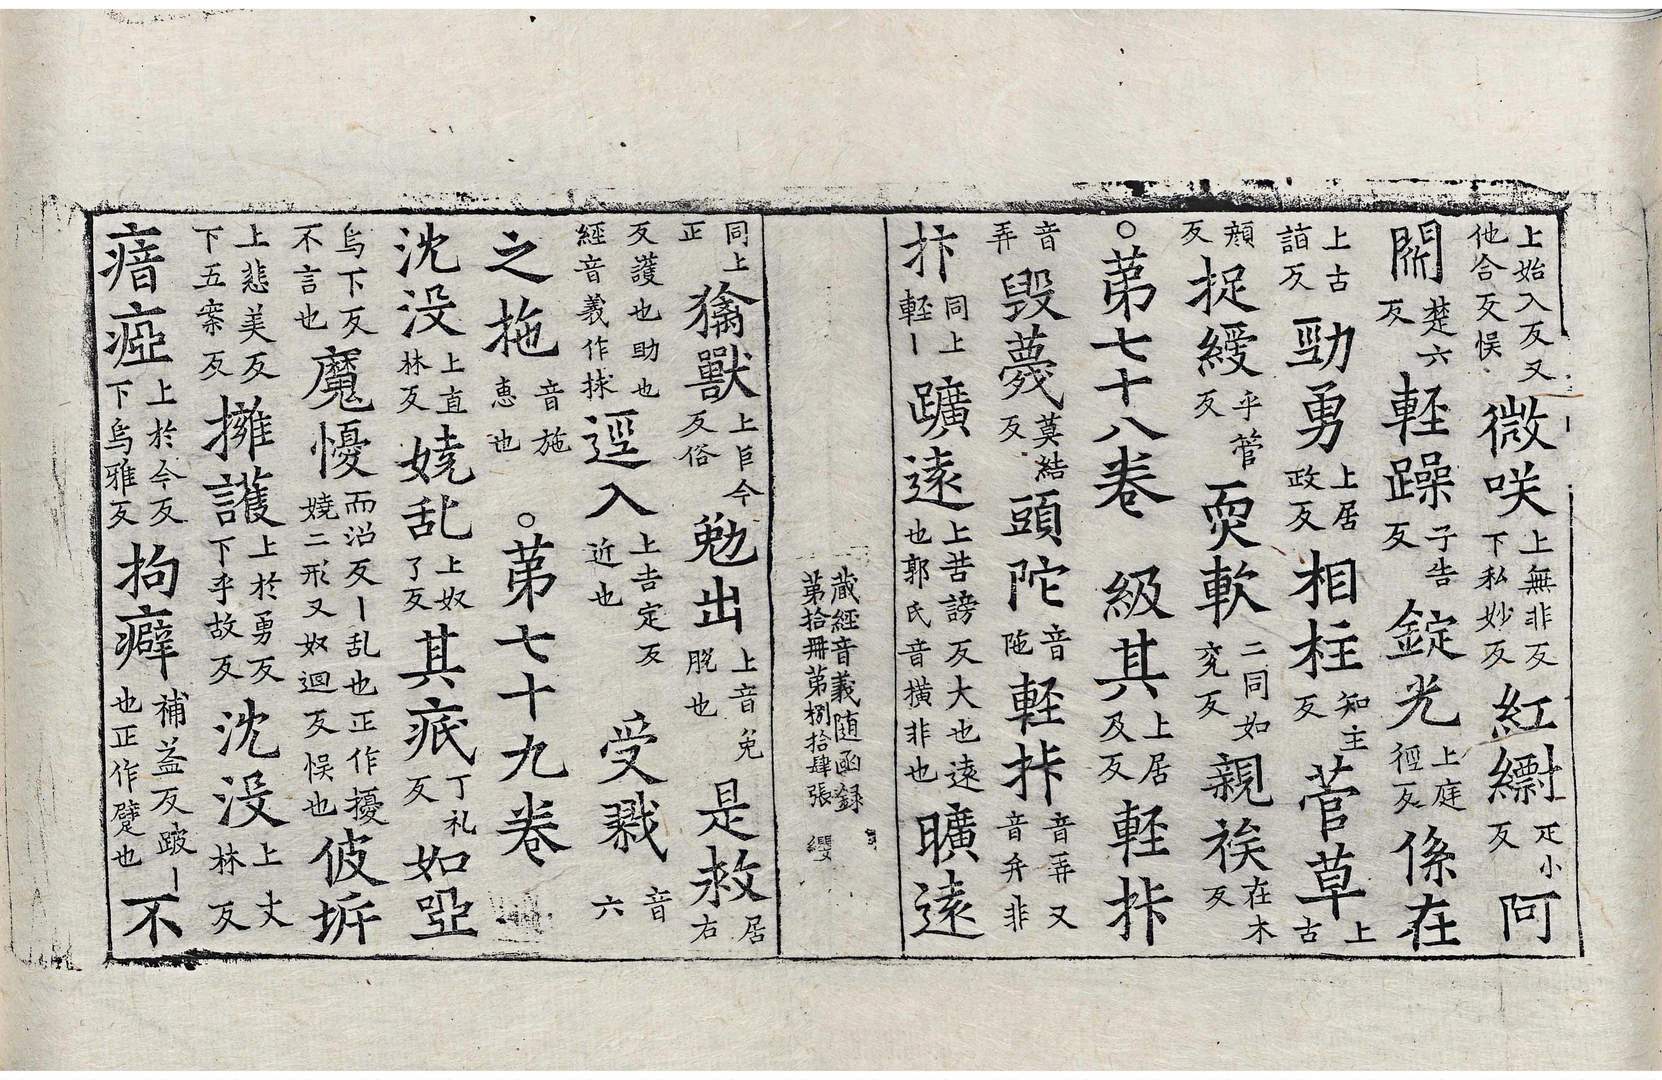 上始入反又他合反悮微咲上無非反下私妙反紅縹疋小反阿
閦楚六反輕躁子告反錠光上庭徑反係在
上古詣反勁勇上居政反相柱知主反菅草上古
顏反捉緩乎管反耎軟二同如兖反親族在木反
○苐七十八卷 級其上居及反輕拤
音弄毀薎莫結反頭陀音陁輕拤音弄又音弁非
抃同上輕丨躌遠上苦謗反大也遠也郭氏音橫非也曠遠
藏經音義随函録
第拾冊第捌拾肆張
同上正獝獸上巨今反俗勉出上音免脫也是救居右
反護也助也經音義作捄逕入上吉定反近也 受戮音六
之拖音施惠也 ○苐七十九卷
沈没上直林反嬈乱上奴了反其疧丁礼反如啞
烏下反不言也魔懮而沼反丨乱也正作擾嬈二形又奴迴反悮也彼坼
上悲美反下五案反擁護上於勇反下乎故反沈没上丈林反
瘖瘂上於今反下烏雅反拘癖補益反跛丨也正作躄也不